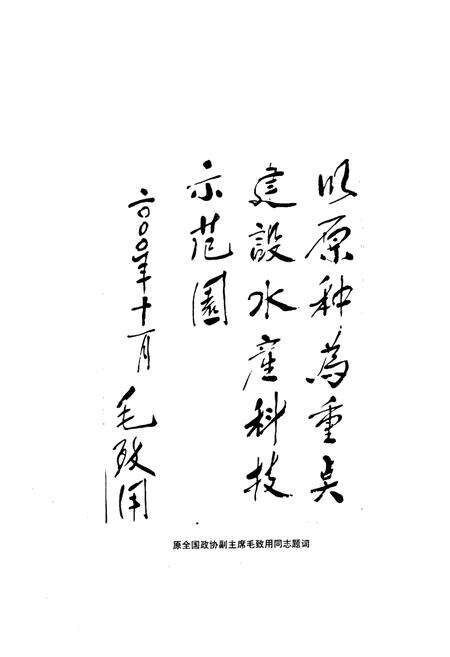 以原种為重点
建設水產科技
示范園
二〇〇〇年十一月 毛致用
原全国政协副主席毛致用同志题词